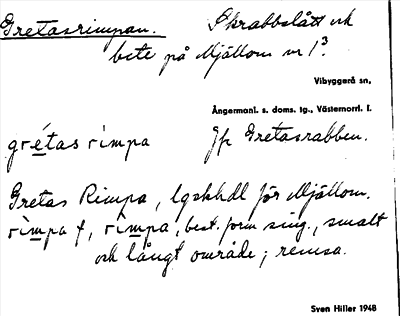 Gretasrimpan. Skrabbslått och
bete på Mjällom nr 1³.
Vibyggerå sn,
Ångermanl. s. doms. tg., Västernorrl. l.
gre´tas rimpa Jfr Gretasrabben.
Gretas Rimpa, lgskhdl för Mjällom.
rimpa f, rimpa, best. form sing., smalt
och långt område; remsa.
Sven Hiller 1948